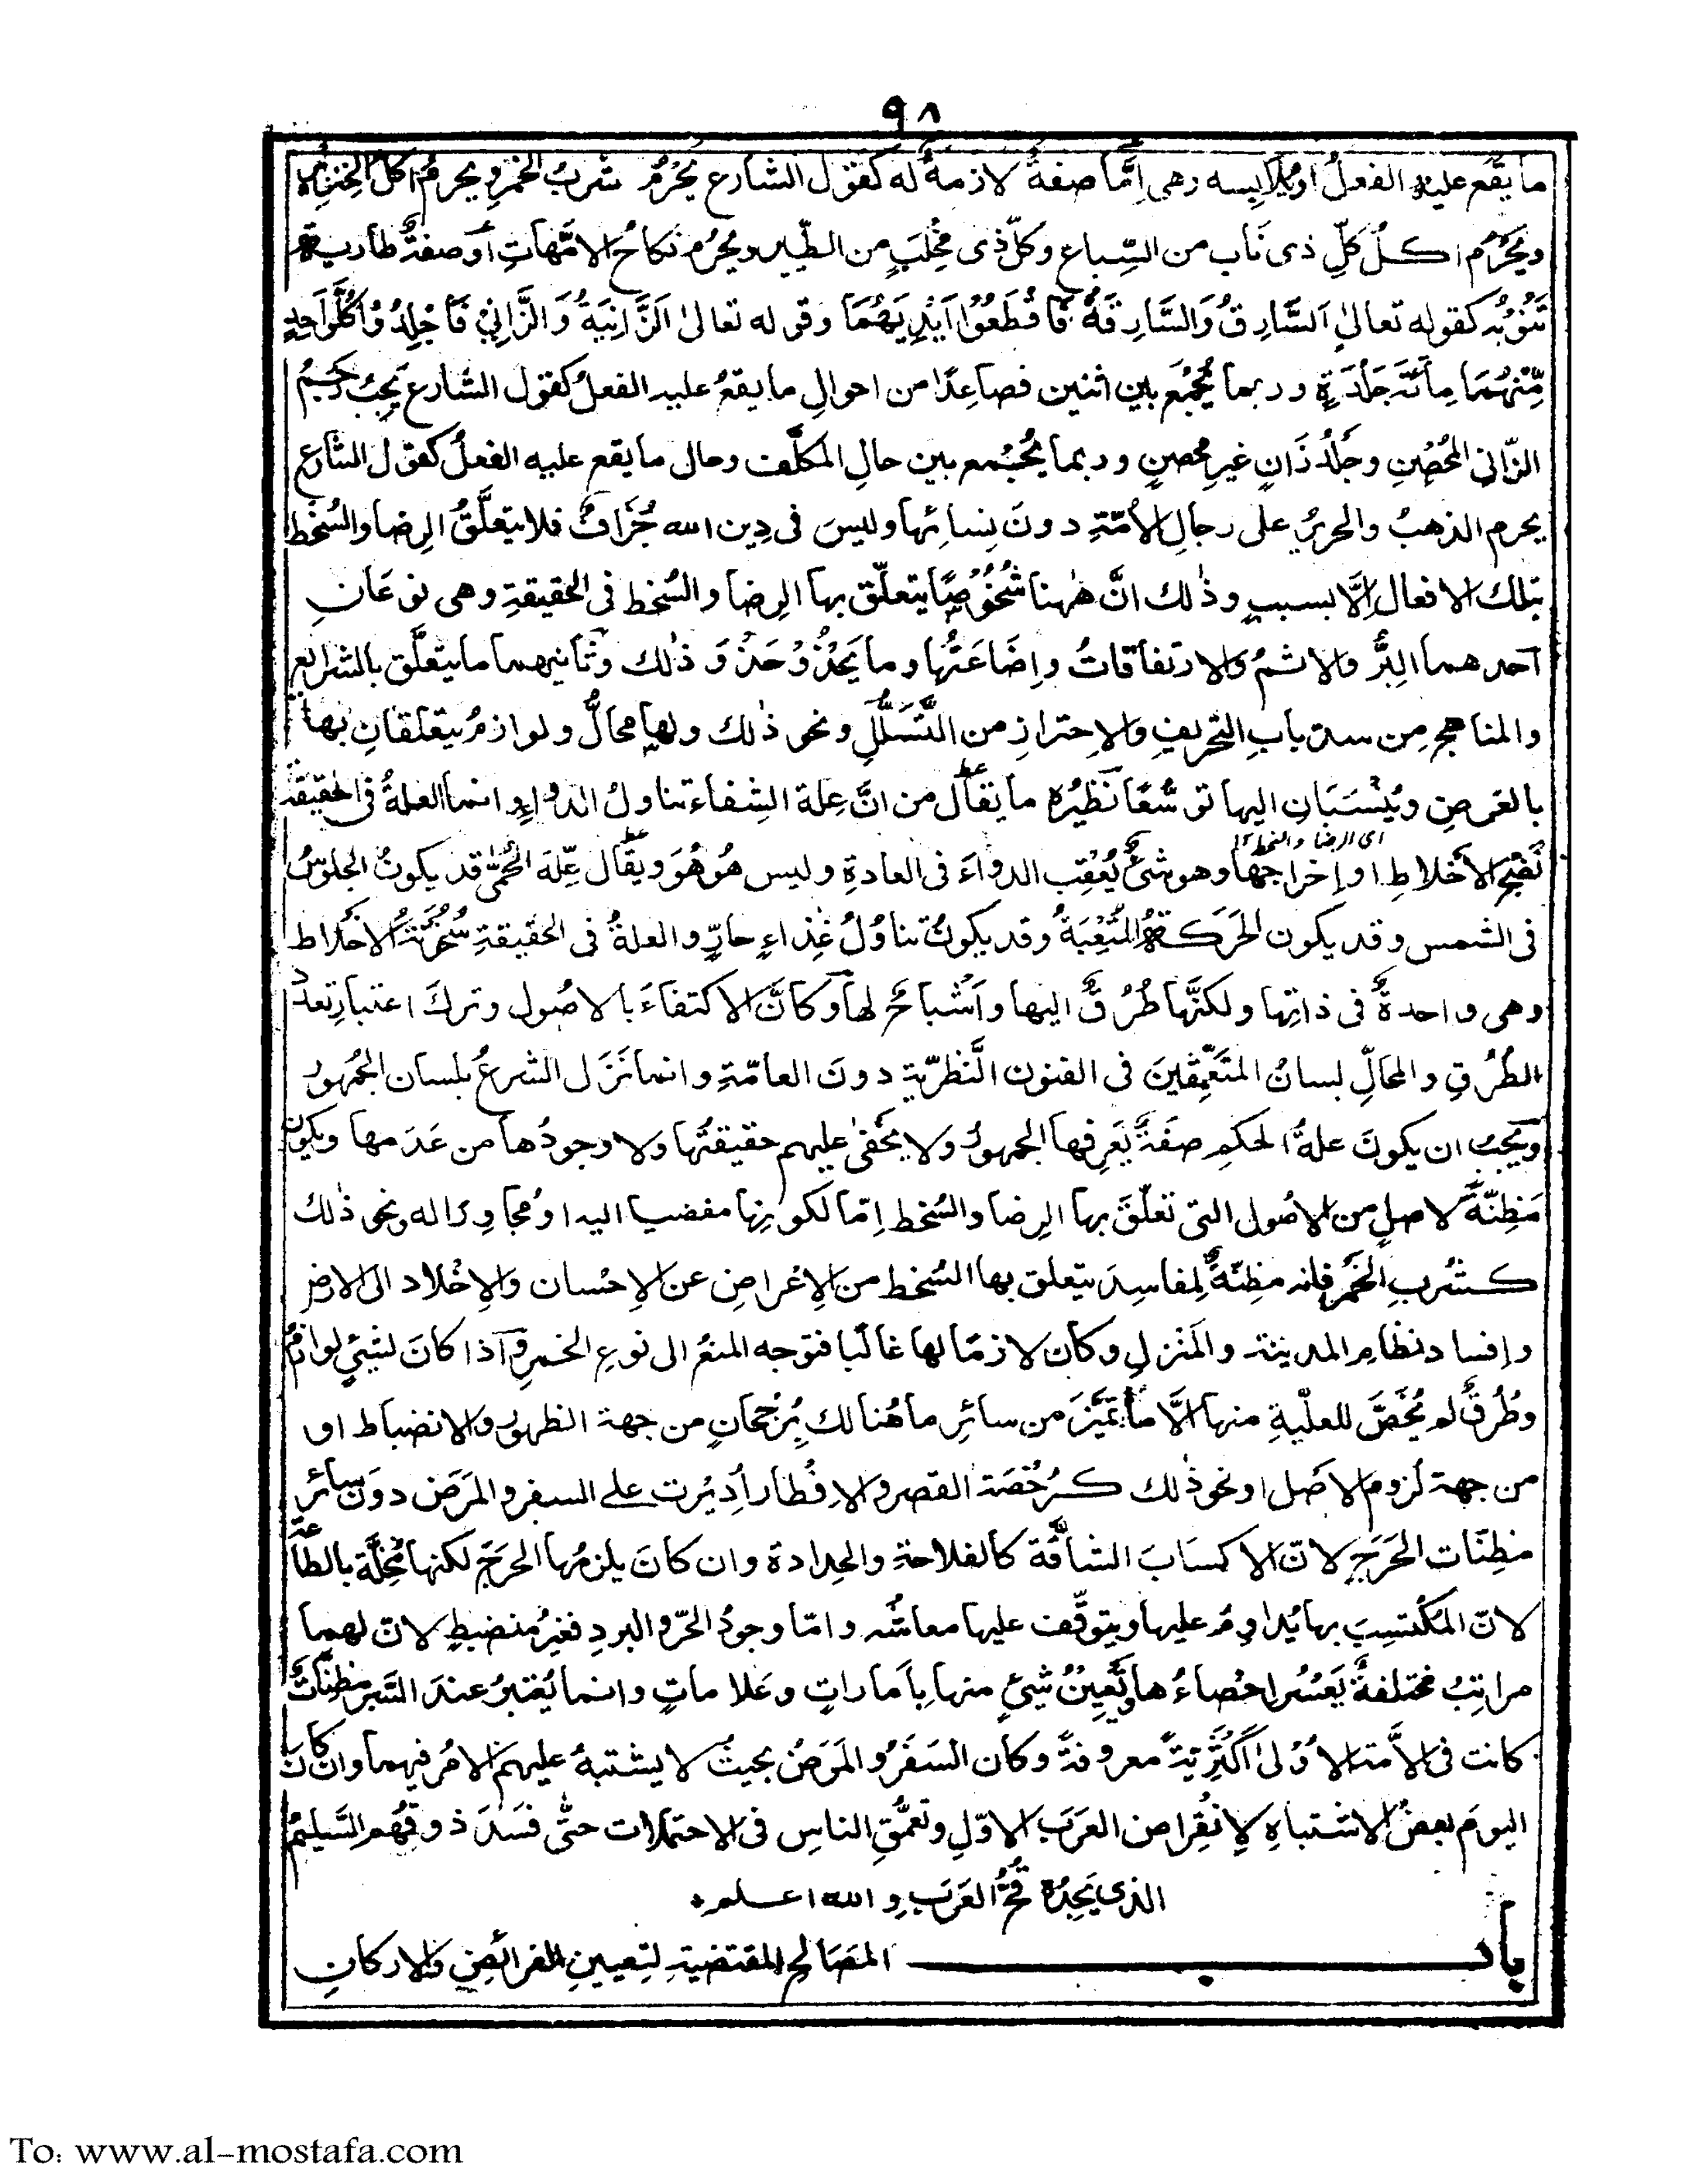 ٩٨
ما يقع عليه الفعلُ او يُلابِسه وهى اِمَّا صفةٌ لازمةٌ له كقول الشارع يَحْرُمُ شربُ الخمرِ ويحرمُ اكلُ الخنزيرِ
ويَحْرُم اكـلُ كلِّ ذى نَاب من السِّباع وكلِّ ذى مِخْلَبٍ من الطَّيرِ ويحرُم نكاحُ الامَّهاتِ أو صفةٌ طاريةٌ
تَنُوبُه كقوله تعالىٰ اَلسَّارِقُ وَالسَّارِقَةُ فَاقْطَعُوْا اَيْدِيَهُمَا وقوله تعالىٰ اَلزَّانِيَةُ وَالزَّانِىْ فَاجْلِدُوْا كُلَّ وَاحِدٍ
مِّنْهُمَا مِائَةَ جَلْدَةٍ وربما يُجْمَع بين اثنين فصاعِدًا من احوالِ ما يقعُ عليه الفعلُ كقول الشارع يَجِبُ رَجْمُ
الزّانى المُحْصِنِ وجَلْدُ زَانٍ غيرِ محصنٍ وربما يُجْمع بين حالِ المكلَّف وحال ما يقع عليه الفعلُ كقول الشارع
يحرم الذهبُ والحريرُ على رجالِ الأمّةِ دونَ نِسائِها وليسَ فى دِين الله جُزَافٌ فلا يتعلَّقُ الرِضا والسُخط
بتلك الافعال اِلَّا بسببٍ وذٰلك انَّ هٰهنا شُخُوْصًا يتعلّق بها الرِضا والسُخط فى الحقيقةِ وهى نوعَانِ
اَحدهما البِرُّ والاثمُ والارتفاقاتُ واِضَاعَتُها وما يَحْذُوْ حَذْوَ ذٰلك وثانيهما ما يتعلَّق بالشرايع
والمناهج مِن سدّ بابِ التحريفِ والاِحترازِ من التَّسَلُّلِ ونحو ذٰلك ولها محالُّ ولوازمُ يتعلقانِ بها
بالعَرضِ ويُنْسَبَانِ اليها توسُّعًا نظيرُه ما يقال من انَّ عِلة الشِفاء تناولُ الدواءِ وانما العلةُ فى الحقيقة
اى الرضا والسخط ١٢
نُضْجُ الأخلاطِ او إخراجُها وهو شئٌ يُعْقِب الدواءَ فى العادةِ وليس هُوهُوَ ويقال عِلّة الحُمّٰى قد يكونُ الجلوسُ
فى الشمس وقد يكون الحَرَكـةُ المُتْعِبَةُ وقد يكونُ تناوُلُ غِذاءٍ حارٍّ والعلةُ فى الحقيقةِ سُخُوْنَةُ الاخلاط
وهى واحدةٌ فى ذاتِها ولكنَّها طُرُقٌ اليها واَشْباحٌ لها وكانَّ الاكتفاءَ بالاصُول وتركَ اعتبارِ تعدّدِ
الطُرُقِ والمحَالِّ لسانُ المتَعمِّقِينَ فى الفنون النَّظَرِيّةِ دونَ العامّةِ وانما نَزَل الشرعُ بلسان الجُمْهور
ويَجِبُ ان يكونَ علةُ الحكمِ صفةً يَعرِفها الجمهورُ ولا يَخْفىٰ عليهم حقيقتُها ولا وجودُها من عَدَمها ويكون
مَظِنّةً لاصلٍ من الاصُول التى تعلّقَ بها الرِضا والسُخط اِمّا لكونِها مفضيا اليه او مُجاوِرا له ونحو ذٰلك
كـشُربِ الخَمْرِ فإنه مظِنّةٌ لِمفاسِدَ يتعلق بها السُخط من الاِعْراضِ عن الاِحْسان والاِخْلاد الى الارض
واِفساد نظامِ المدينة والمَنْزلِ وكان لازمًا لها غالبًا فتوجه المنعُ الى نوعِ الخمرِ واذا كانَ لشَئٍ لوازمُ
وطُرُقٌ لم يُخَصَّ للعلّيةِ منها اِلَّا ما تَمَيَّزَ من سائِرِ ما هُنالك بِرُجْحانٍ من جهة الظهورِ والانضباط او
من جهة لُزومِ الاصْل او نحو ذٰلك كـرُخْصة القصر والاِفْطار اُدِيْرت على السفر والمَرَض دونَ سائر
مظِنّات الحَرَجِ لانّ الاكسَابَ الشاقَّة كالفلاحة والحِدادة وان كانَ يلزمُها الحرَجُ لكنها مُخِلَّة بالطاعة
لانّ المُكْتسِبَ بها يُداوِمُ عليها ويتوقّف عليها معاشُه وامّا وجودُ الحرّ والبردِ فغيرُ منضبطٍ لانّ لهما
مراتبُ مختلفةٌ يَعْسُر اِحْصاءُها وتَعْيِيْنُ شئٍ منها بِاَماراتٍ وعَلاماتٍ وانما يُعْتبرُ عندَ السَّبرِ مظِنَّاتٌ
كانت فى الأمّة الاُوْلىٰ اَكْثَرِيّةً معروفةً وكان السَفَرُ والمَرَضُ بحيثُ لا يشتبهُ عليهم الامرُ فيهما وان كانَ
اليومَ بعضُ الاشتباهِ لِانْقِراضِ العَرَبِ الاوّلِ وتَعمُّقِ الناسِ فى الاحتمالات حتّٰى فسَدَ ذوقُهم السَّليمُ
الذى يَجِدُه قُحُّ العَرَبِ والله اعـلم
بابـ المَصَالحِ المقتضيةِ لتعيينِ الفرائضِ والاركانِ
To: www.al-mostafa.com